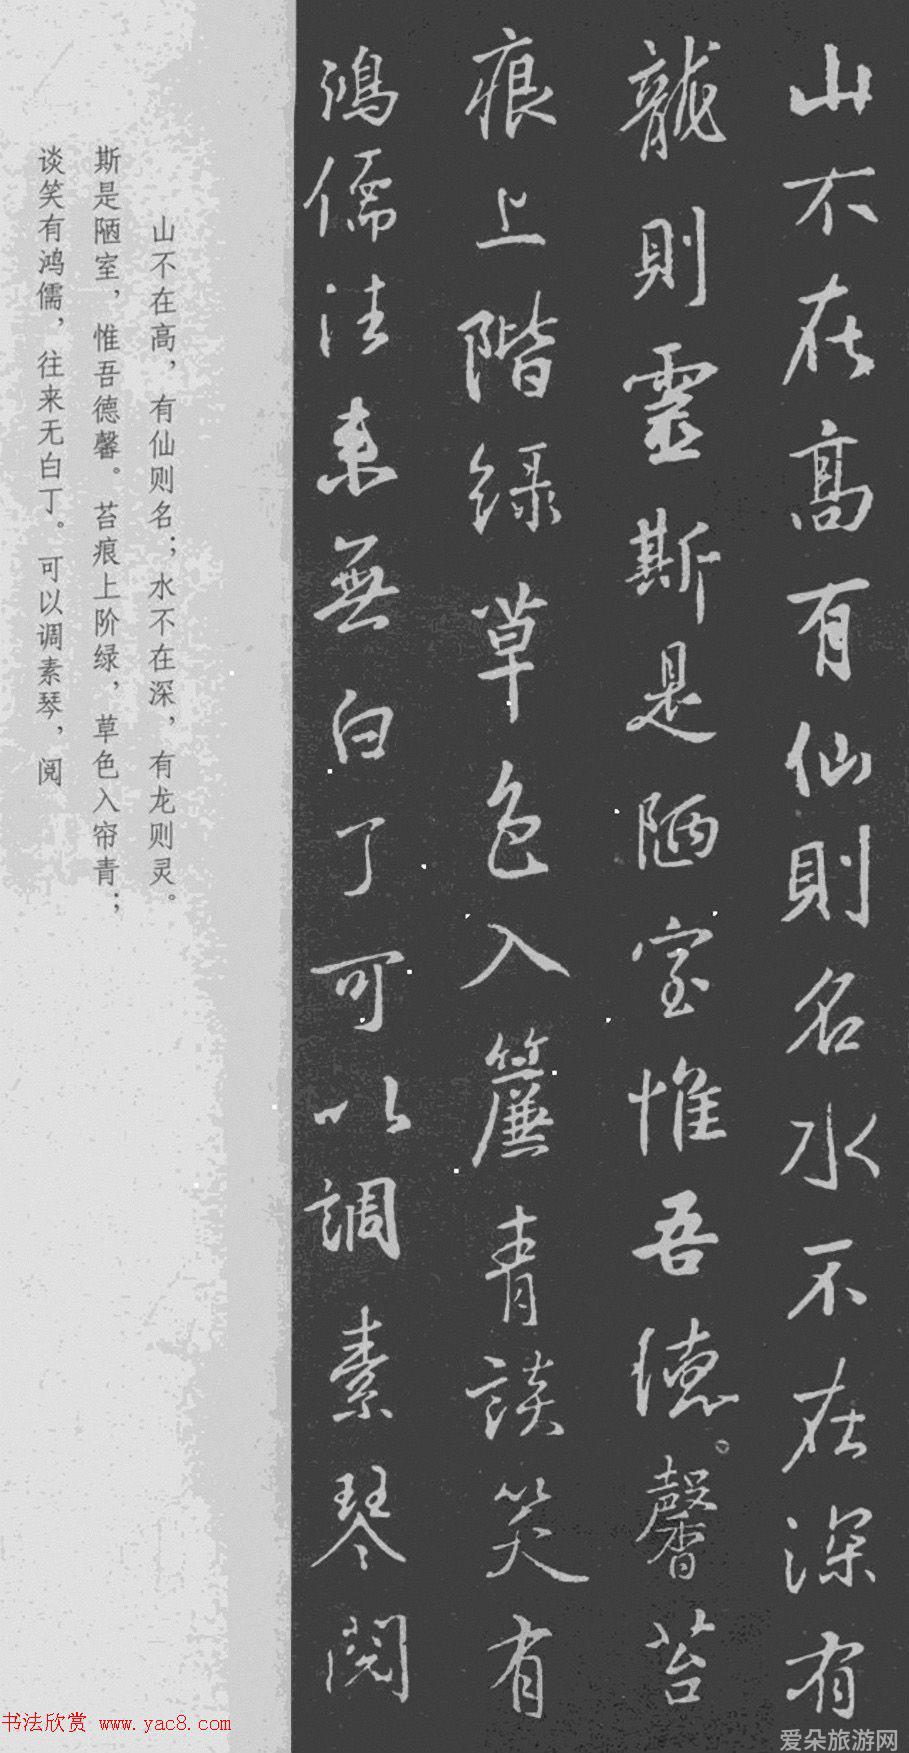 山不在高有仙則名水不在深有
龍則靈斯是陋室惟吾德馨苔
痕上階緑草色入簾青談笑有
鴻儒往来無白丁可以調素琴閱
山不在高，有仙则名；水不在深，有龙则灵。
斯是陋室，惟吾德馨。苔痕上阶绿，草色入帘青；
谈笑有鸿儒，往来无白丁。可以调素琴，阅
书法欣赏 www.yac8.com
爱朵旅游网